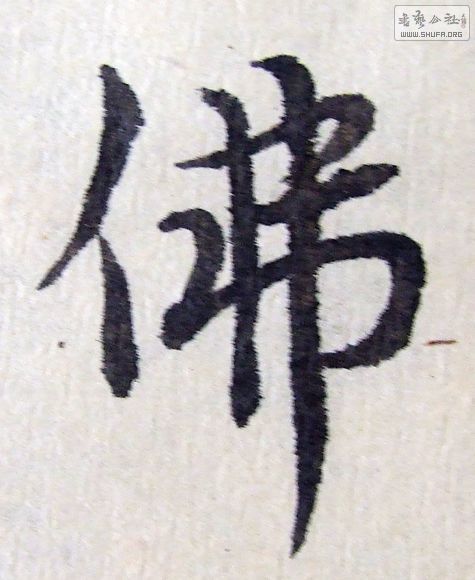 佛
书艺公社
WWW.SHUFA.ORG